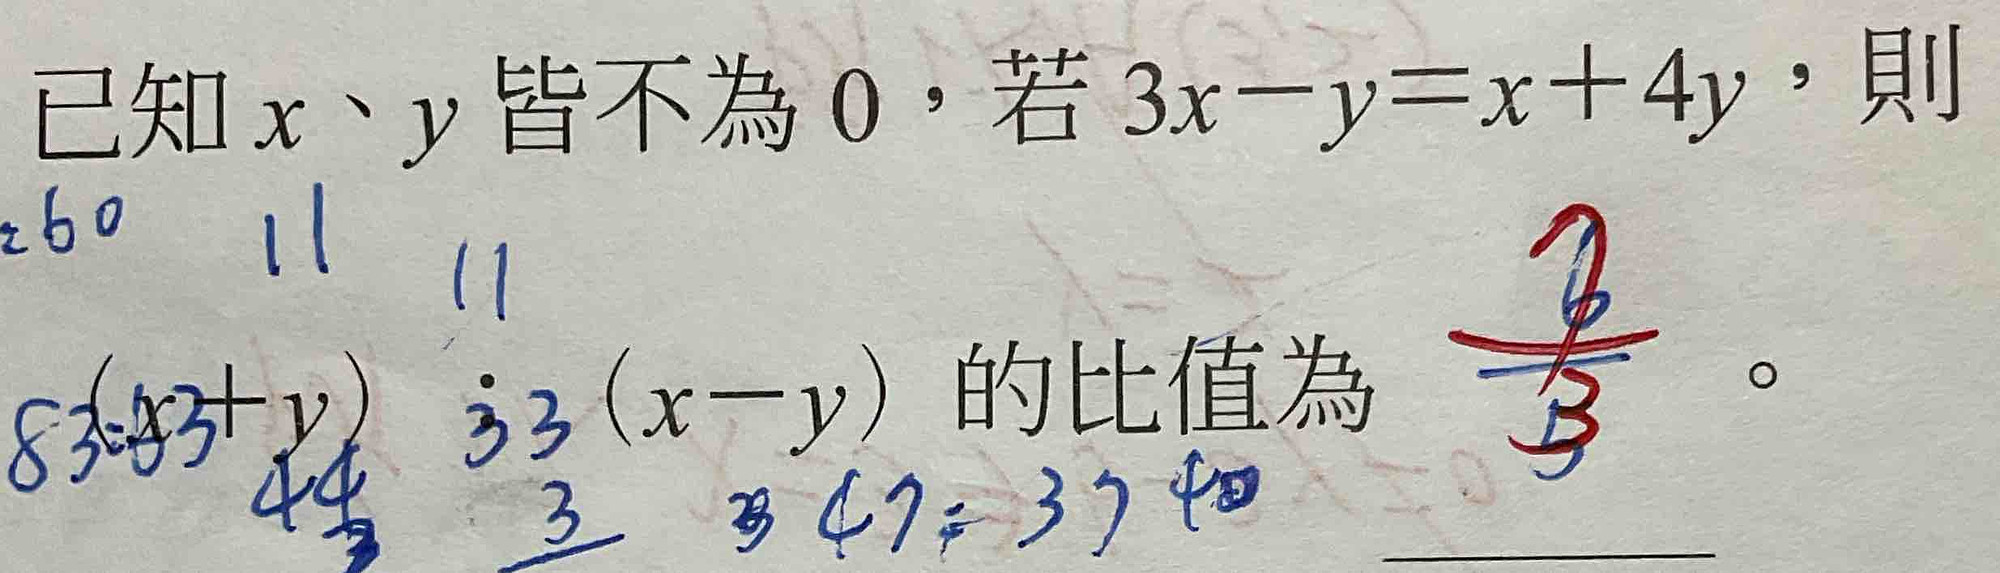 已知 x、y 皆不為 0，若 3x－y＝x＋4y，則
60 11
11
(x＋y)：(x－y) 的比值為 7/3 。
44 33
3 47 = 37 40